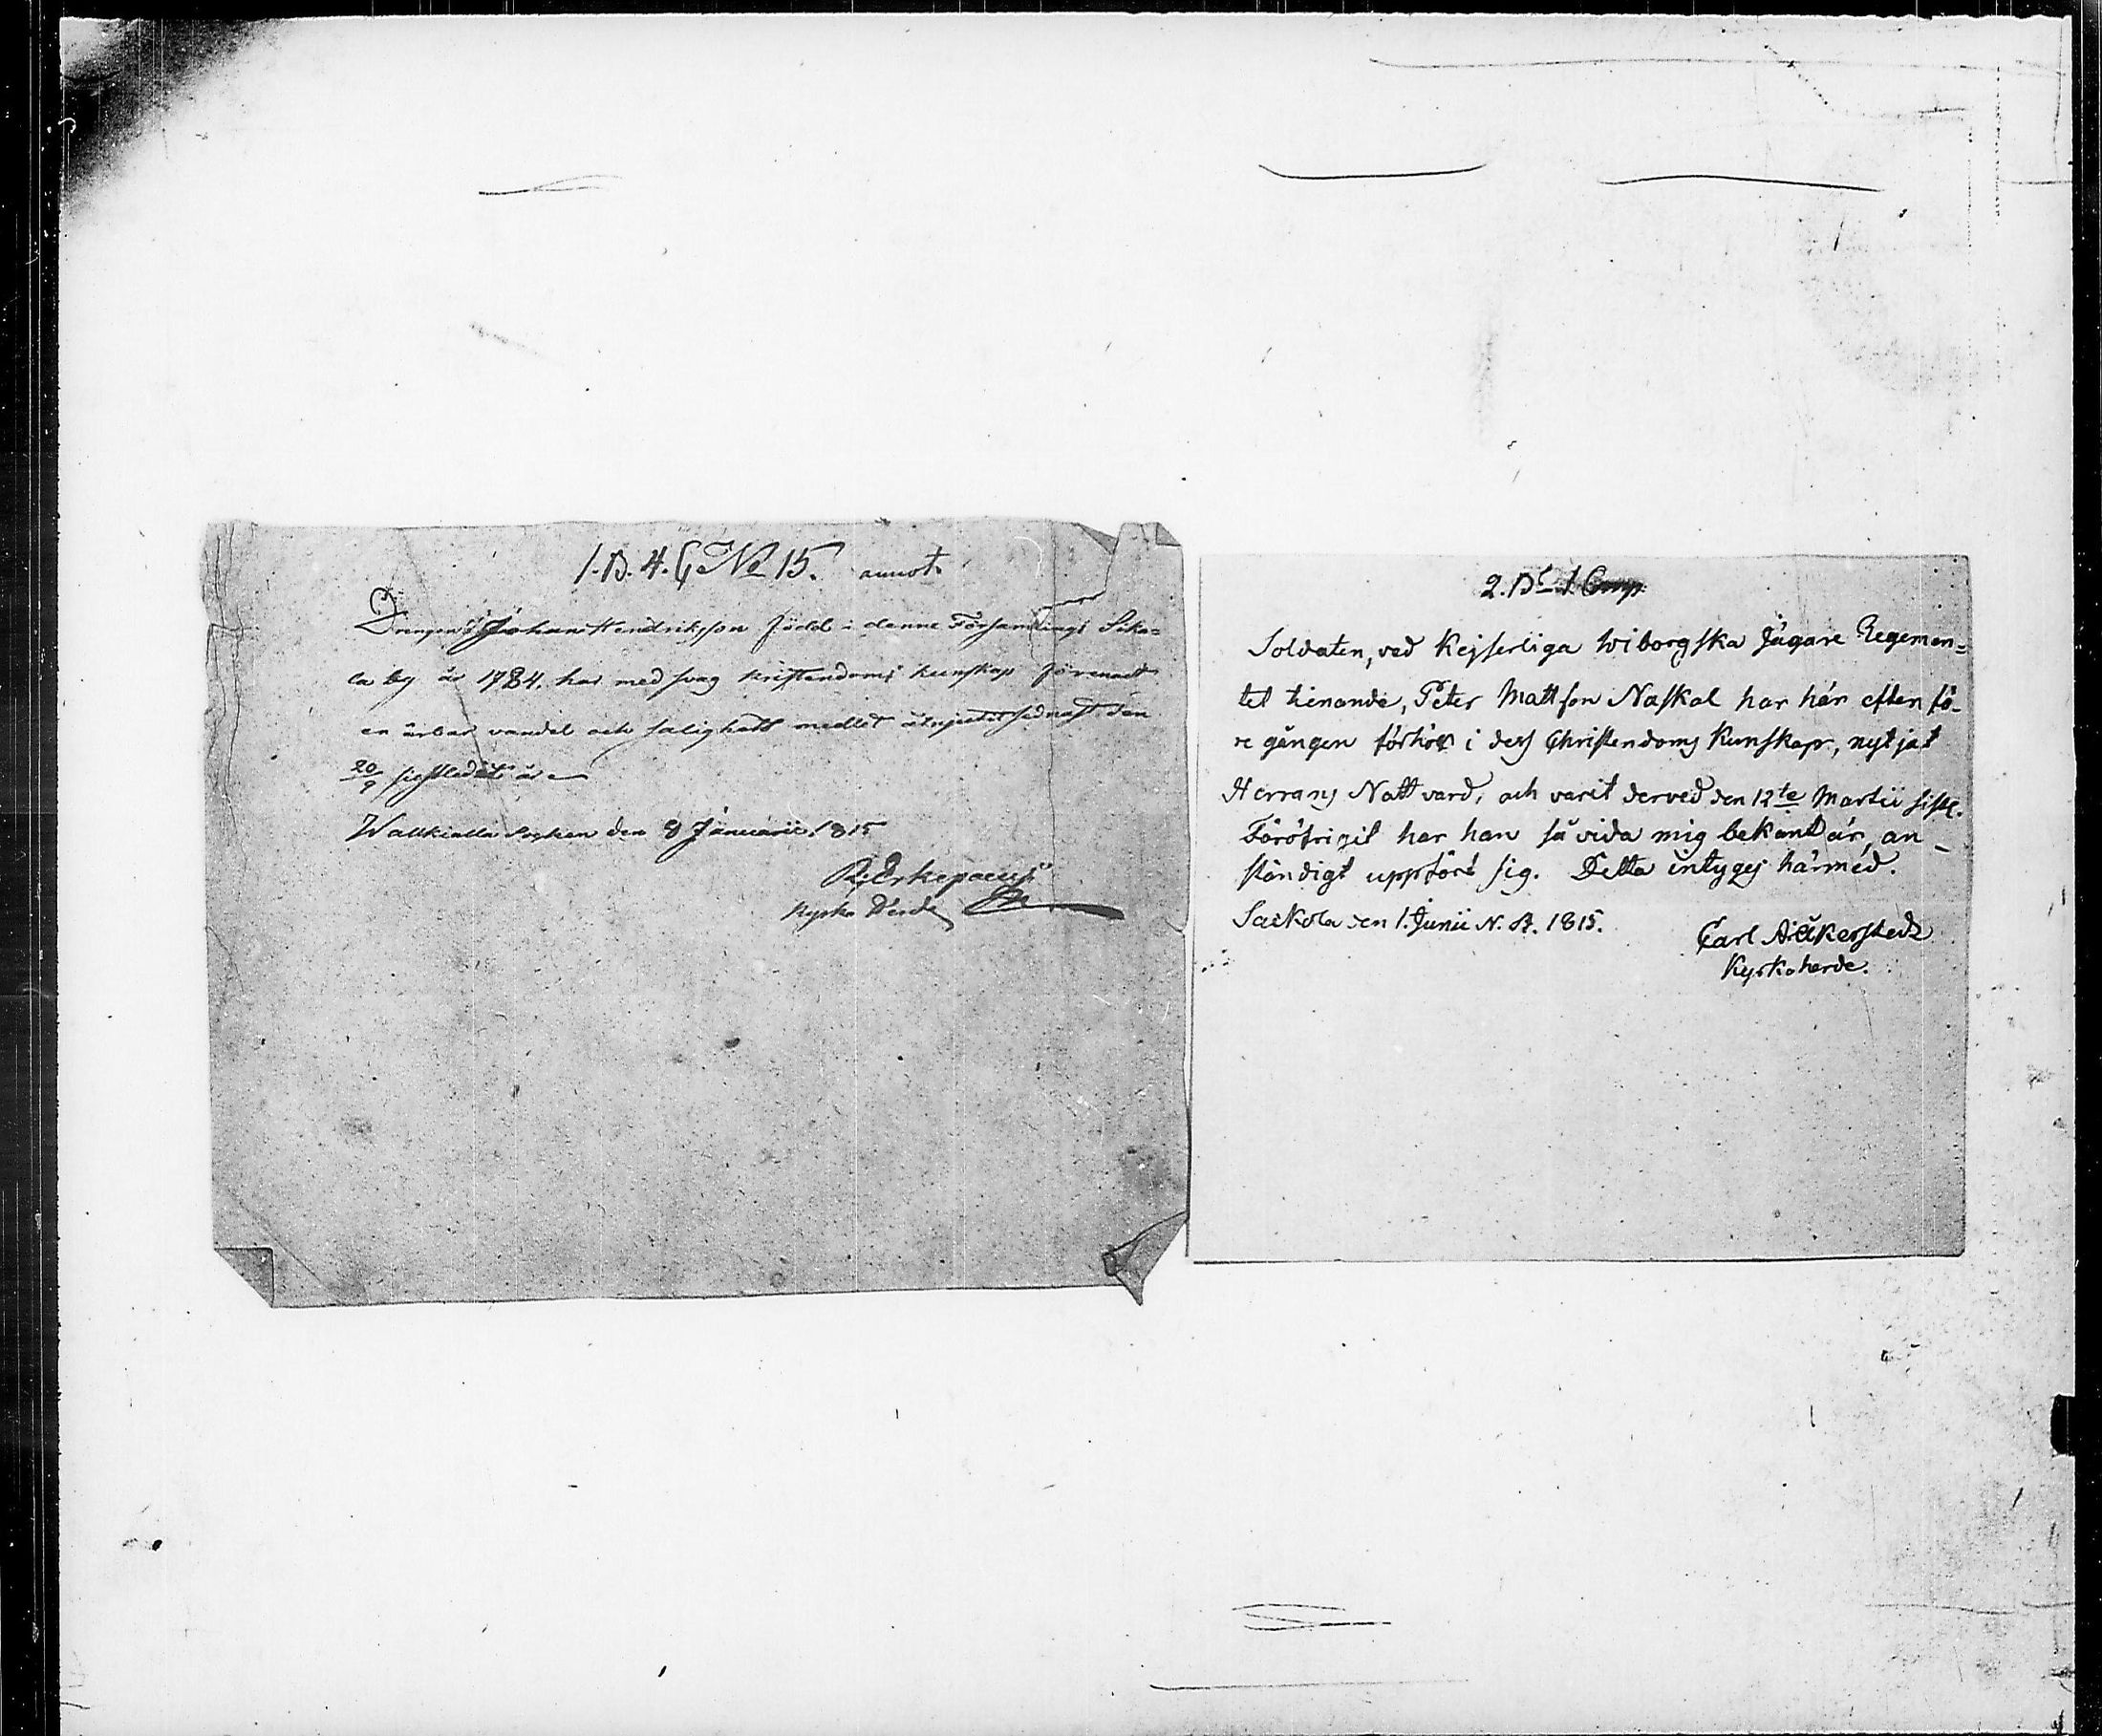 1. B. 4. C. No 15. annot.
Drengen Johan Hendriksson född i denne Församlings Sika=
la by år 1784. har med svag kristendoms kunskap förenadt
en ärbar vandel och salighets medlet åtnjutit sednast den
20/9 sistledit år
Walkiala Socken den 8 Januarii 1815
Kyrko Herde
2. Bt. 1 Comp.
Soldaten, vid Kejserliga Wiborgska Jägare Regemen=
tet tienande, Peter Mattson Naskal har här efter fö-
re gången förhör i dess Christendoms Kunskap, nytjat
Herrans Nattvard, och varit derved den 12te Martii sistl.
Föröfrigit har han så vida mig bekant är, an-
ständigt uppfört sig. Detta intyges härmed.
Sackola den 1. Junii N. St. 1815.
Carl Aickerstedt
Kyrkoherde.